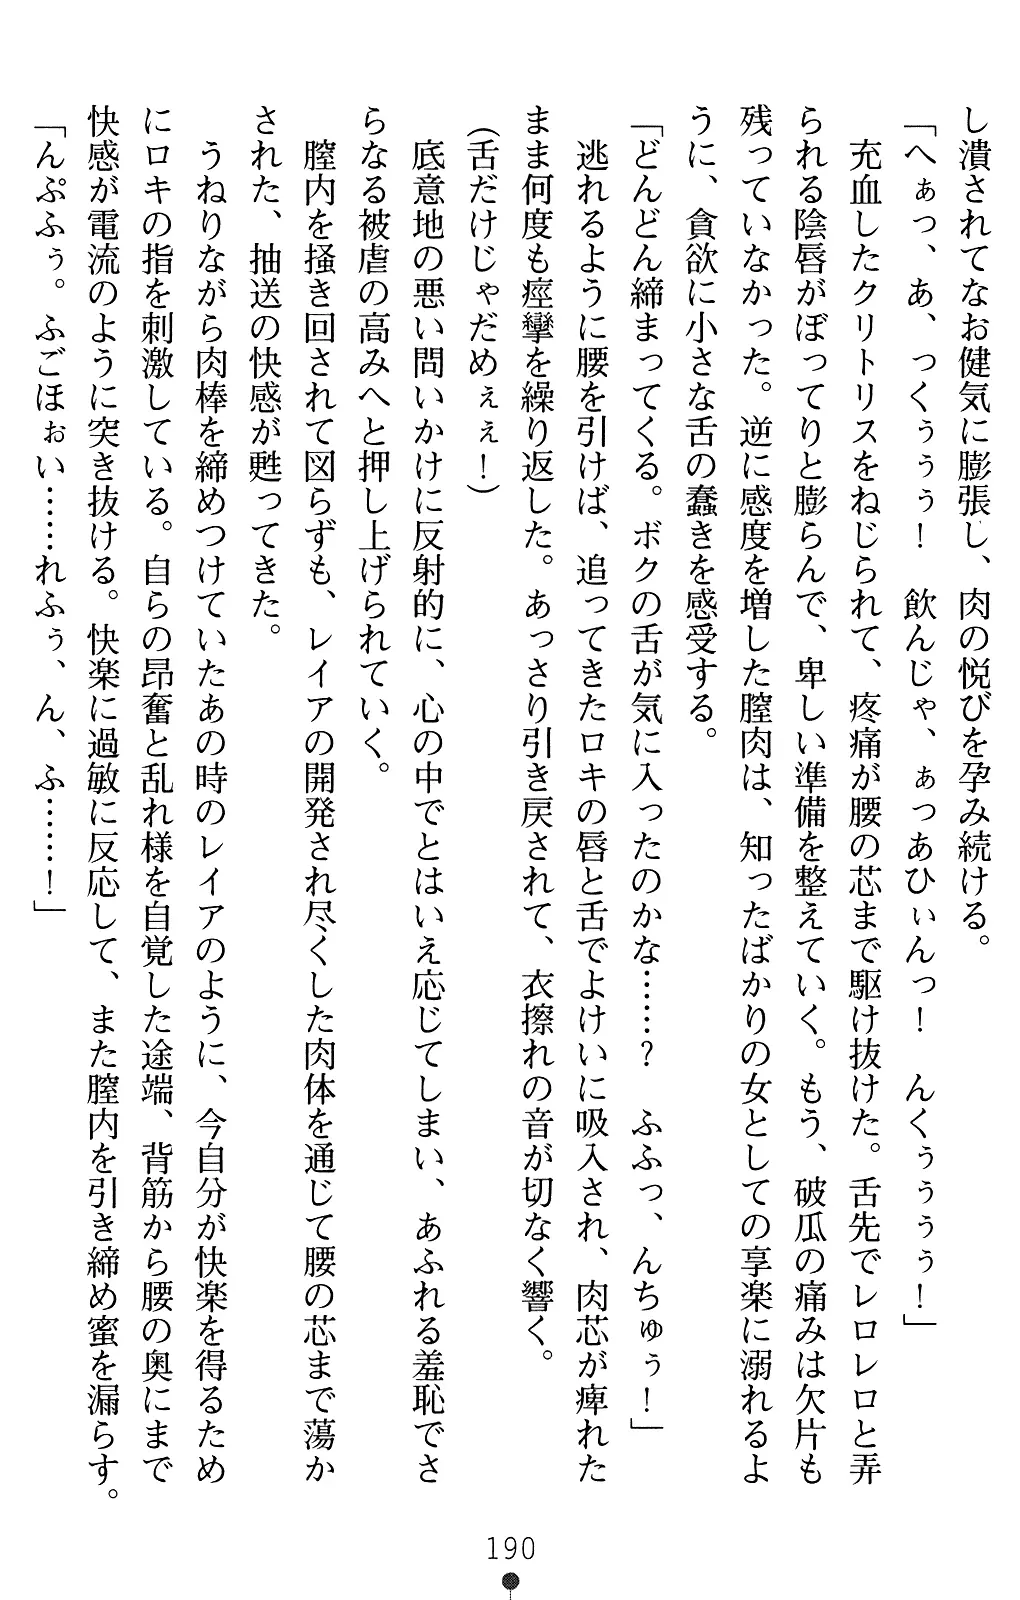 し潰されてなお健気に膨張し、肉の悦びを孕み続ける。
「へぁっ、あ、っくぅぅぅ！　飲んじゃ、ぁっあひぃんっ！　んくぅぅぅぅ！」
　充血したクリトリスをねじられて、疼痛が腰の芯まで駆け抜けた。舌先でレロレロと弄
られる陰唇がぼってりと膨らんで、卑しい準備を整えていく。もう、破瓜の痛みは欠片も
残っていなかった。逆に感度を増した膣肉は、知ったばかりの女としての享楽に溺れるよ
うに、貪欲に小さな舌の蠢きを感受する。
「どんどん締まってくる。ボクの舌が気に入ったのかな……？　ふふっ、んちゅぅ！」
　逃れるように腰を引けば、追ってきたロキの唇と舌でよけいに吸入され、肉芯が痺れた
まま何度も痙攣を繰り返した。あっさり引き戻されて、衣擦れの音が切なく響く。
（舌だけじゃだめぇぇ！）
　底意地の悪い問いかけに反射的に、心の中でとはいえ応じてしまい、あふれる羞恥でさ
らなる被虐の高みへと押し上げられていく。
　膣内を掻き回されて図らずも、レイアの開発され尽くした肉体を通じて腰の芯まで蕩か
された、抽送の快感が甦ってきた。
　うねりながら肉棒を締めつけていたあの時のレイアのように、今自分が快楽を得るため
にロキの指を刺激している。自らの昂奮と乱れ様を自覚した途端、背筋から腰の奥にまで
快感が電流のように突き抜ける。快楽に過敏に反応して、また膣内を引き締め蜜を漏らす。
「んぷふぅ。ふごほぉい……れふぅ、ん、ふ……！」
190